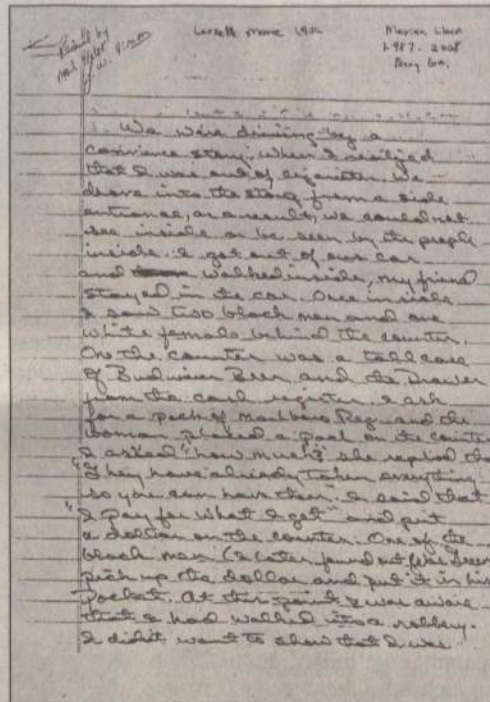 Marion
1987-2008
We were driving by a
convience story, when I realized
that I was out of cigarettes. We
drove into the story from a side
entranae, as a result, we could not
see inside or be seen by the people
inside. I got out of our car
and walked inside, my friend
stayed in the car. Once inside
I saw two black men and one
white female behind the counter.
One the counter was a tall case
of Budwiser Beer and the Drawer
from the cash register. I ask
for a pack of Marlboro Reg. and the
woman placed a pack on the counter
I asked "how much?" she replied that
"They have already taken everything
so you can have them." I said that
"I pay for what I get" and put
a dollar on the counter. One of the
black men (I later found out was
pick up the dollar and put it in his
pocket. At this point I was aware
that I had walked into a robbery.
I didn't want to show that I was